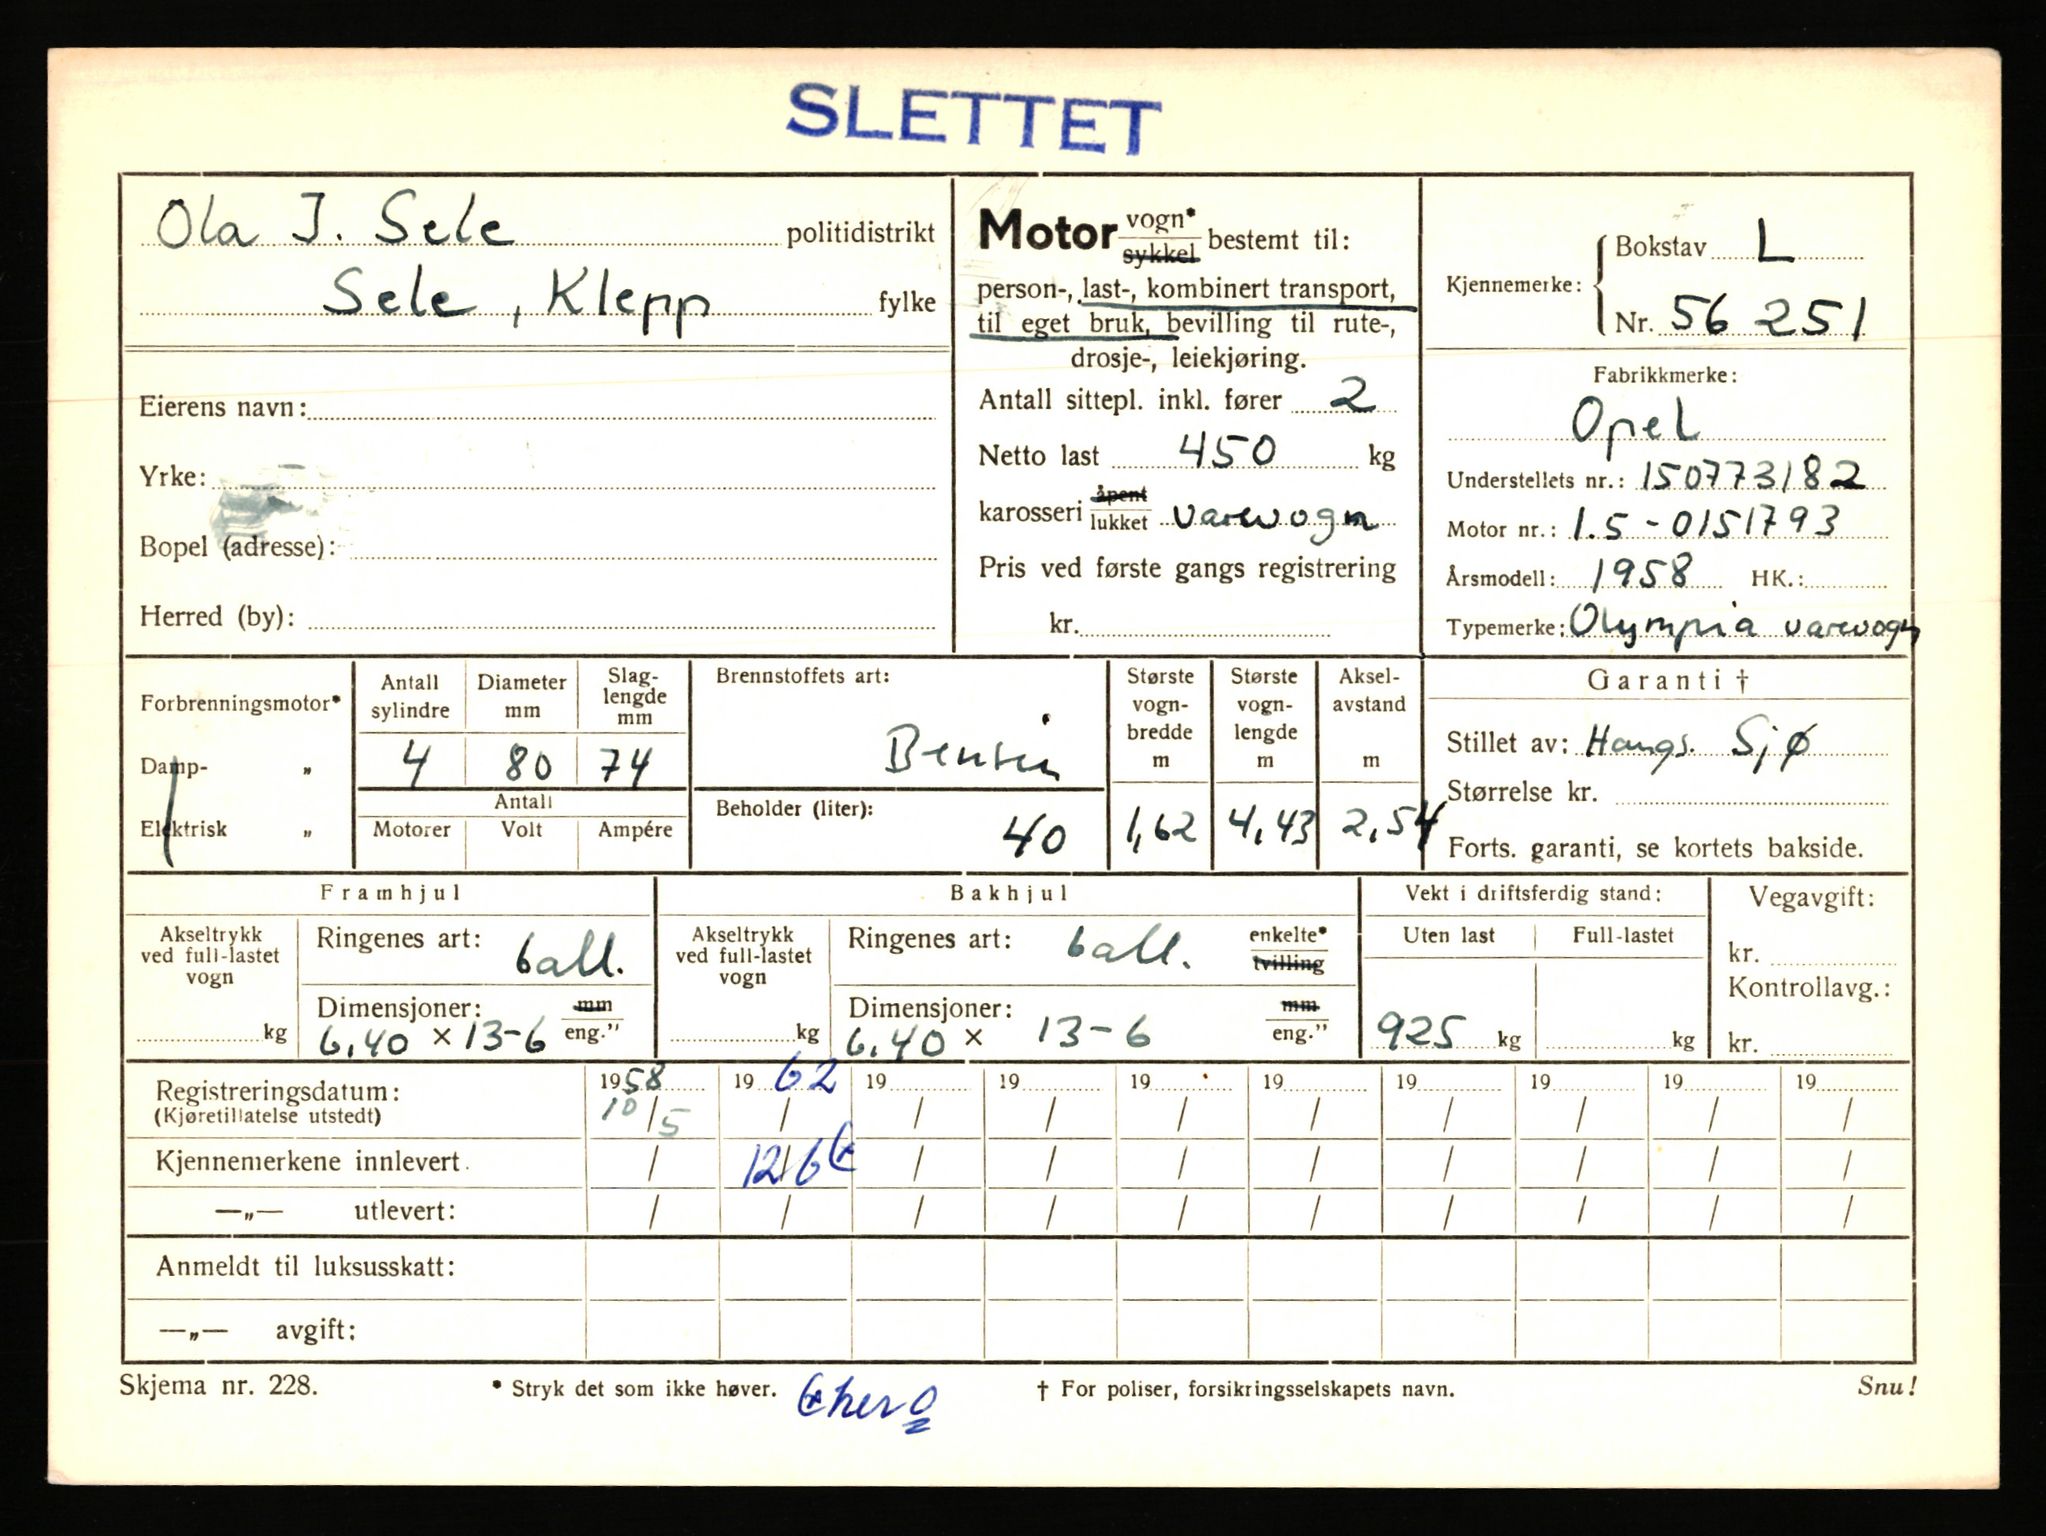 SLETTET
Ola J. Sele politidistrikt
Sele, Klepp fylke
Eierens navn:
Yrke:
Bopel (adresse):
Herred (by):
Motor vogn* bestemt til:
sykkel
person-, last-, kombinert transport,
til eget bruk, bevilling til rute-,
drosje-, leiekjøring.
Antall sittepl. inkl. fører 2
Netto last 450 kg
karosseri åpent
lukket varevogn
Pris ved første gangs registrering
kr.
Kjennemerke: Bokstav L
Nr. 56 251
Fabrikkmerke:
Opel
Understellets nr.: 150773182
Motor nr.: 1.5-0151793
Årsmodell: 1958 HK.:
Typemerke: Olympia varevogn
Forbrenningsmotor*
Damp- „
Elektrisk „
Antall sylindre
Diameter mm
Slag-
lengde
mm
4 80 74
Antall
Motorer Volt Ampére
Brennstoffets art:
Bensin
Beholder (liter):
40
Største
vogn-
bredde
m
1,62
Største
vogn-
lengde
m
4,43
Aksel-
avstand
m
2,54
Garanti †
Stillet av: Haugs. Sjø
Størrelse kr.
Forts. garanti, se kortets bakside.
Framhjul
Akseltrykk
ved full-lastet
vogn
kg
Ringenes art: ball.
Dimensjoner: mm
6,40 × 13-6 eng."
Bakhjul
Akseltrykk
ved full-lastet
vogn
kg
Ringenes art: ball. enkelte*
tvilling
Dimensjoner: mm
6,40 × 13-6 eng."
Vekt i driftsferdig stand:
Uten last Full-lastet
925 kg kg
Vegavgift:
kr.
Kontrollavg.:
kr.
Registreringsdatum: 1958 1962 19 19 19 19 19 19 19 19
(Kjøretillatelse utstedt) 10/5 / / / / / / / / /
Kjennemerkene innlevert / 12/6 / / / / / / / /
—„— utlevert: / / / / / / / / / /
Anmeldt til luksusskatt:
—„— avgift:
Skjema nr. 228. * Stryk det som ikke høver. † For poliser, forsikringsselskapets navn. Snu!